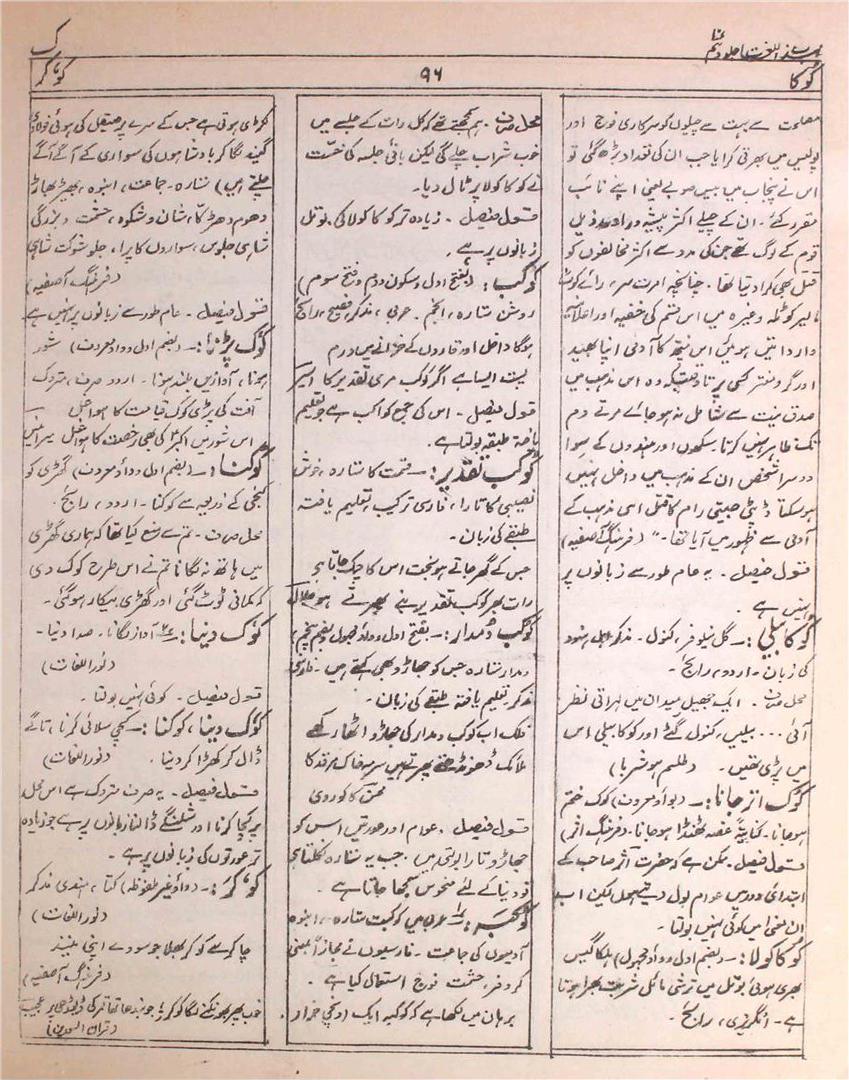 مہذب اللغات جلد دہم
کوکا
۹۶
کوکر
مصلحت سے بہت سے چیلوں کو سرکاری فوج اور
پولیس میں بھرتی کرایا جب ان کی تعداد بڑھ گئی تو
اس نے پنجاب میں بیس صوبے یعنی اپنے نائب
مقرر کئے۔ ان کے چیلے اکثر پیشہ ور اور رذیل
قوم کے لوگ تھے جن کی مدد سے اکثر مخالفوں کو
قتل بھی کرا دیتا تھا۔ چنانچہ امرت سر، رائے کوٹ
مالیر کوٹلہ وغیرہ میں اس قسم کی خفیہ اور اعلانیہ
وارداتیں ہوئیں اس پنتھ کا آدمی اپنا بھید
اور گرو منتر کسی پر تاوقتیکہ وہ اس مذہب میں
صدق نیت سے شامل نہ ہو جائے مرتے دم
تک ظاہر نہیں کرتا سکھوں اور ہندوؤں کے سوا
دوسرا شخص ان کے مذہب میں داخل نہیں
ہو سکتا ڈپٹی جیتی رام کا قتل اسی مذہب کے
آدمی سے ظہور میں آیا تھا۔" (فرہنگ آصفیہ)
قول فیصل۔ یہ عام طور سے زبانوں پر
نہیں ہے۔
کوکا بیلی:۔ گل نیلوفر، کنول۔ مذکر اہل ہنود
کی زبان۔ اردو، رائج۔
محل صرف۔ ایک جھیل میدان میں لہراتی نظر
آئی ... بیلیں، کنول گٹے اور کوکا بیلی اس
میں پڑی تھیں۔ (طلسم ہوشربا)
کوک اتر جانا:۔ (بواؤ معروف) کوک ختم
ہو جانا۔ کنایۃً غصہ ٹھنڈا ہو جانا۔ (فرہنگ اثر)
قول فیصل۔ ممکن ہے کہ حضرت اثر صاحب کے
ابتدائی دور میں عوام بول دیتے ہوں لیکن اب
ان معنی میں کوئی نہیں بولتا۔
کوکا کولا:۔ (بضم اول و واؤ مجہول) ہلکا گیس
بھری ہوئی بوتل میں ترشی مائل شربت بھرا ہوتا
ہے۔ انگریزی، رائج۔
محل صرف۔ ہم سمجھتے تھے کہ کل رات کے جلسے میں
خوب شراب چلے گی لیکن بانی جلسہ کی خست
نے کوکا کولا پر ٹال دیا۔
قول فیصل۔ زیادہ تر کوکا کولا کی بوتل
زبانوں پر ہے۔
کوکب:۔ (بفتح اول و سکون دوم و فتح سوم)
روشن ستارہ، انجم۔ عربی، مذکر فصیح، رائج
ہوگا داخل اور قاروں کے خزانے میں درم
پست ایسا ہے اگر کوکب مری تقدیر کا اسیر
قول فیصل۔ اس کی جمع کواکب ہے جو تعلیم
یافتہ طبقہ بولتا ہے۔
کوکب تقدیر:۔ قسمت کا ستارہ، خوش
نصیبی کا تارا، فارسی ترکیب، تعلیم یافتہ
طبقے کی زبان۔
جس کے گھر جاتے ہو بخت اس کا چمک جاتا ہے
رات بھر کوکب تقدیر بنے پھرتے ہو جلال
کوکب دمدار:۔ بفتح اول و واؤ مجہول بضم پنجم،
دمدار ستارہ جس کو جھاڑو بھی کہتے ہیں۔ فارسی
مذکر، تعلیم یافتہ طبقے کی زبان۔
فلک اب کوکب دمدار کی جھاڑو اٹھا رکھے
ملائک ڈھونڈھتے پھرتے ہیں سرمہ خاک مرقد کا
محسن کاکوروی
قول فیصل۔ عوام اور عورتیں اس کو
جھاڑو تارا بولتی ہیں جب یہ ستارہ نکلتا ہے
تو دنیا کے لئے منحوس سمجھا جاتا ہے۔
کوکبہ:۔ عربی میں کوکبت ستارہ۔ انبوہ
آدمیوں کی جماعت۔ فارسیوں نے مجازاً بمعنی
کروفر، حشمت فوج استعمال کیا ہے۔
برہان میں لکھا ہے کہ کوکبہ ایک اونچی خمدار
لکڑی ہوتی ہے جس کے سرے پر صیقل کی ہوئی فولادی
گیند لگا کر بادشاہوں کی سواری کے آگے آگے
چلتے ہیں) ستارہ۔ جماعت، انبوہ، بھیڑ بھاڑ
دھوم دھڑکا، شان و شکوہ، حشمت و بزرگی
شاہی جلوس، سواروں کا پرا، جلو شوکت شاہی
(فرہنگ آصفیہ)
قول فیصل۔ عام طور سے زبانوں پر نہیں ہے
کوک پڑنا:۔ (بضم اول و واؤ معروف) شور
ہونا، آوازیں بلند ہونا۔ اردو صرف، متروک
آفت کی پڑی کوک قیامت کا ہوا غل
اس شور میں اکبر کی بھی رخصت کا ہوا غل میر انیس
کوکنا:۔ (بضم اول و واؤ معروف) گھڑی کو
کنجی کے ذریعہ سے کوکنا۔ اردو، رائج۔
محل صرف۔ تم سے منع کیا تھا کہ ہماری گھڑی
میں ہاتھ نہ لگانا تم نے اس طرح کوک دی
کہ کمانی ٹوٹ گئی اور گھڑی بیکار ہو گئی۔
کوک دینا:۔ آواز لگانا۔ صدا دینا۔
(نور اللغات)
قول فیصل۔ کوئی نہیں بولتا۔
کوک دینا، کوکنا:۔ کچی سلائی کرنا، تاگے
ڈال کر کھڑا کر دینا۔ (نور اللغات)
قول فیصل۔ یہ صرف متروک ہے اس محل
پر کچا کرنا اور شلنگے ڈالنا زبانوں پر ہے جو زیادہ
تر عورتوں کی زبانوں پر ہے۔
کوکر:۔ (واؤ غیر ملفوظ) کتا، ہندی مذکر
(نور اللغات)
چاکر سے کوکر بھلا جو سووے اپنی نیند
(فرہنگ آصفیہ)
خوب پھر بھونکنے لگا کوکر
(قران السعدین)